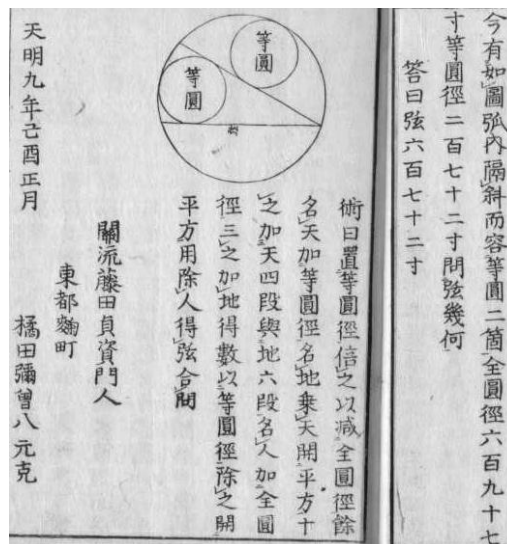 今有如圖弧内隔斜而容等圓二箇全圓徑六百九十七
寸等圓徑二百七十二寸問弦幾何
答曰弦六百七十二寸
等圓
等圓
弦
術曰置等圓徑倍之以減全圓徑餘
名天加等圓徑名地乗天開平方十
之加天四段與地六段名人加全圓
徑三之加地得數以等圓徑除之開
平方用除人得弦合問
關流藤田貞資門人
東都麴町
橘田彌曾八元克
天明九年己酉正月